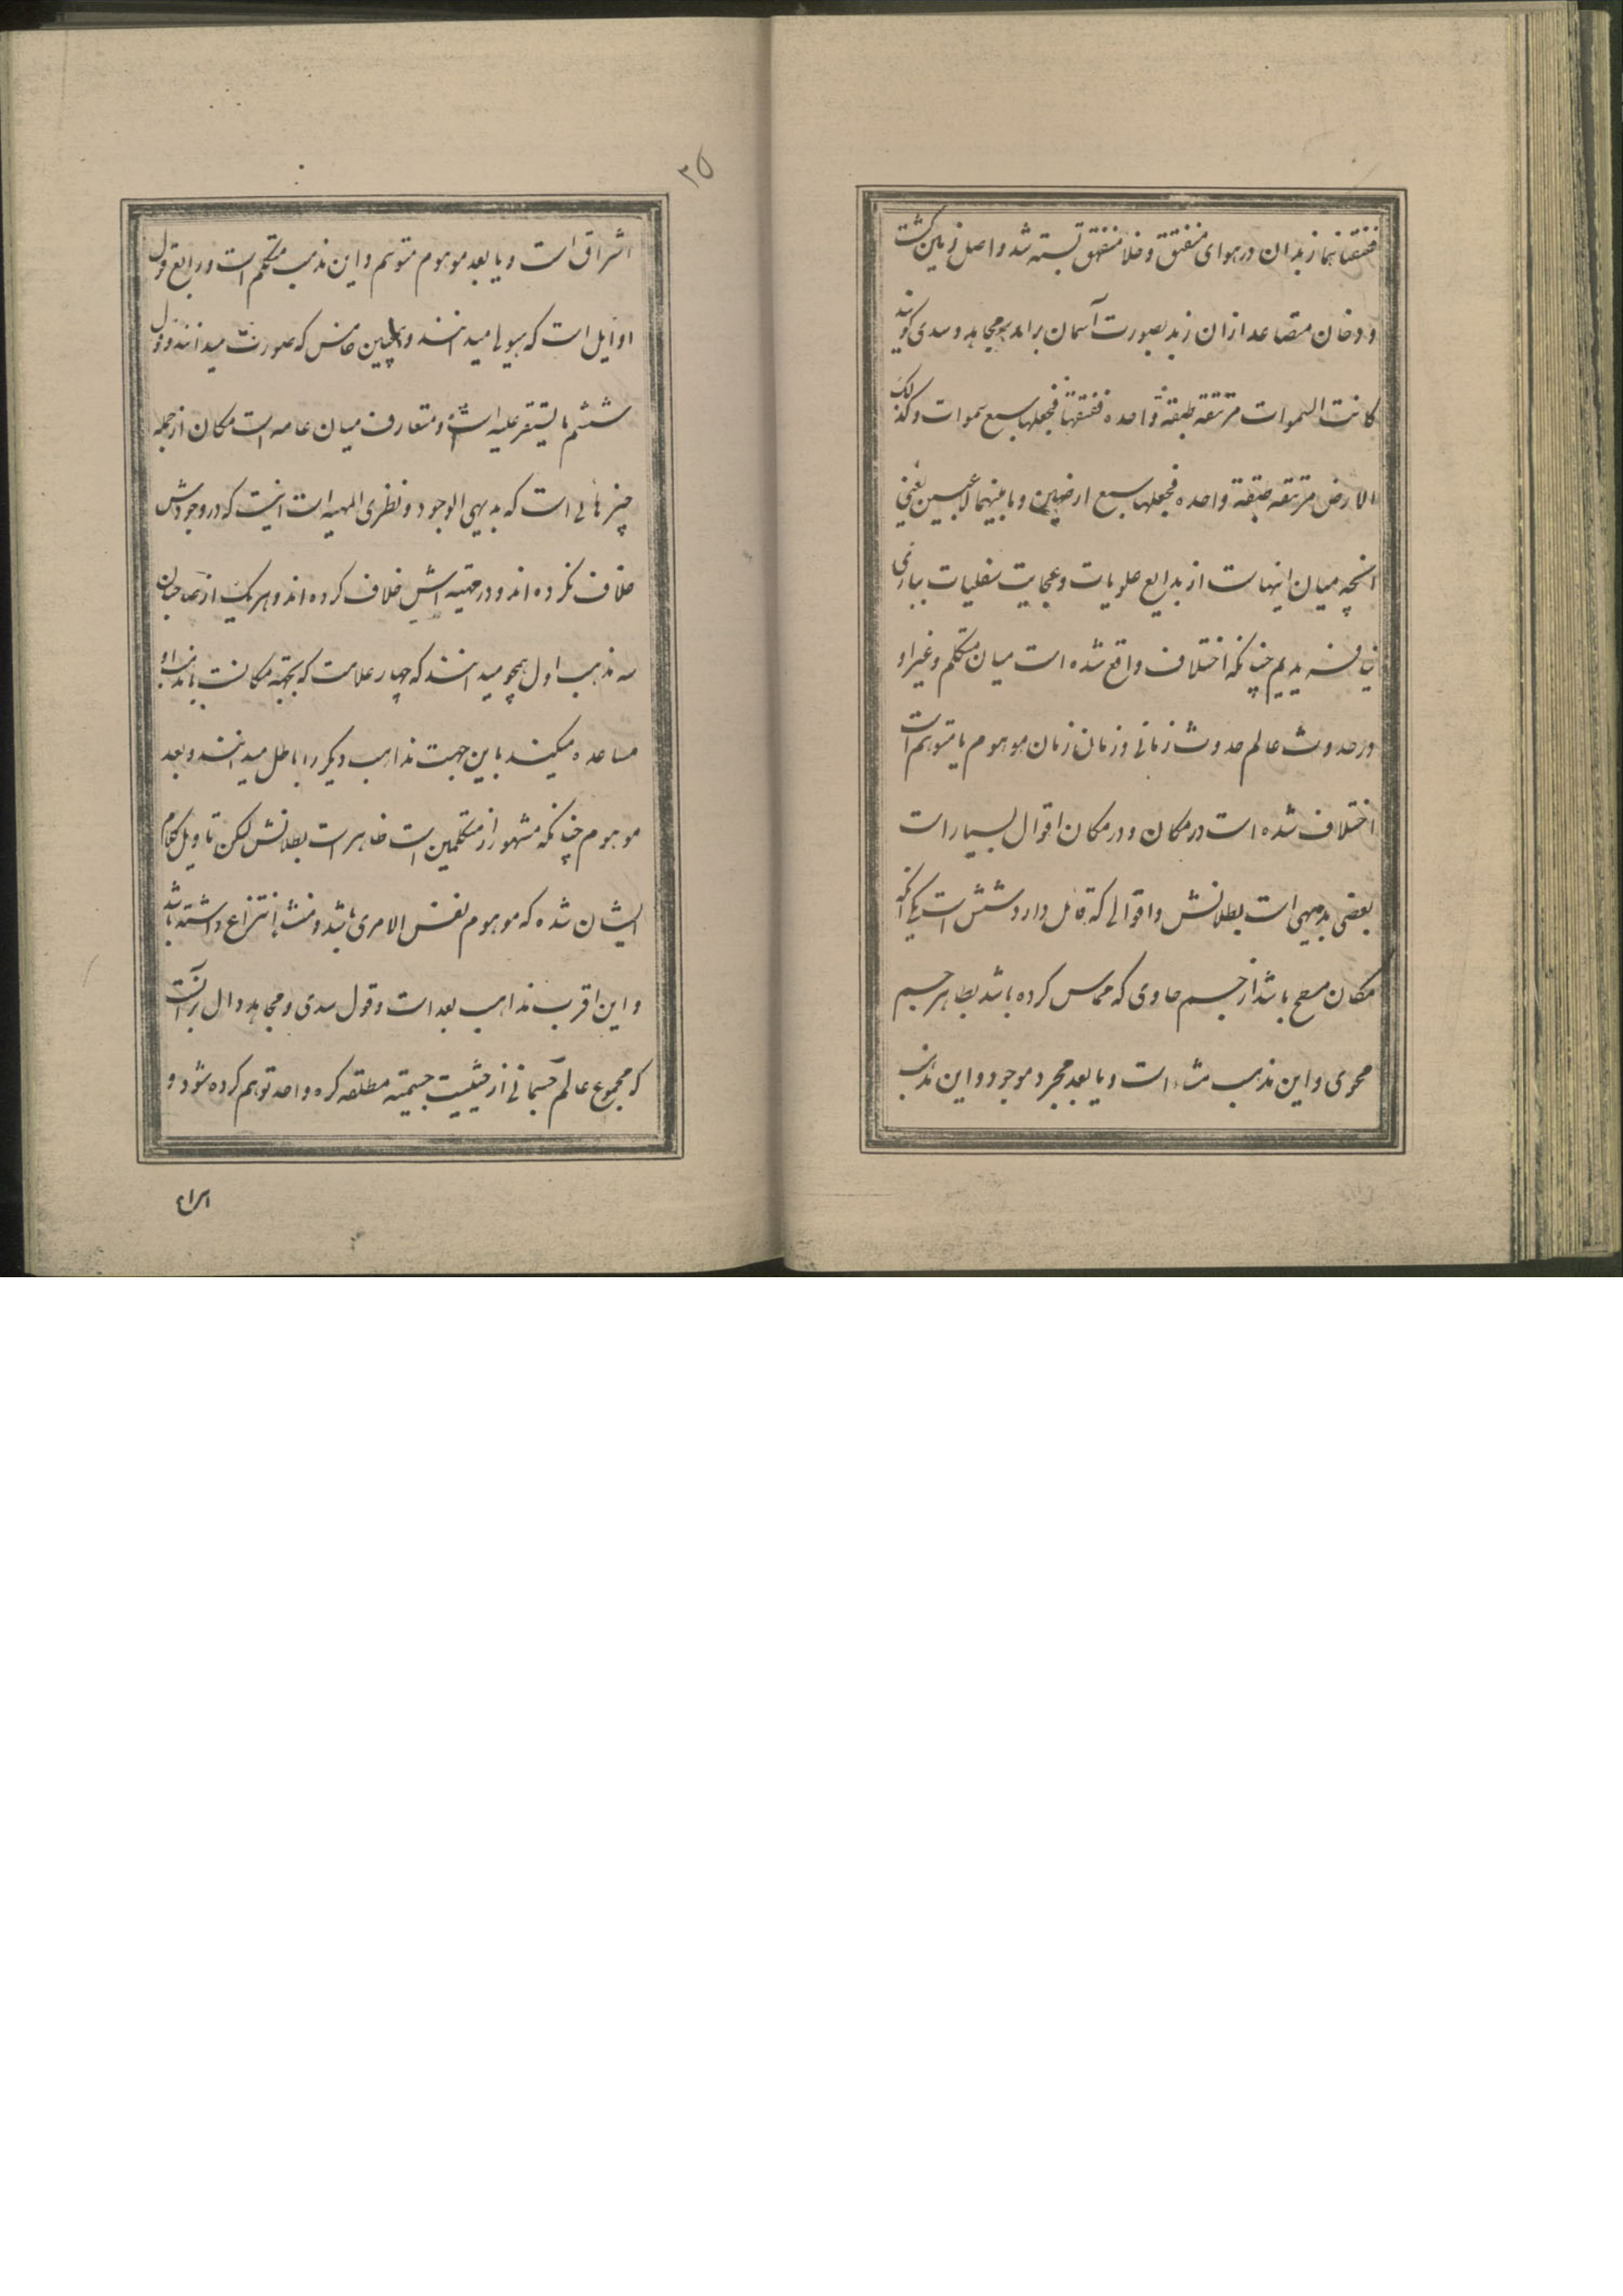 ففتقناهما زبد ان در هوای منفتق و خلا منفهق بسته شد و اصل زمین گشت
و دخان متصاعد ازان زبد بصورت آسمان برامد مجاهد و سدی گویند
کانت السموات مرتتقه طبقة واحده ففتقها فجعلها سبع سموات و کذلک
الارض مرتتقه طبقة واحده فجعلها سبع ارضین و ما بینهما لاعبین یعنی
انچه میان اینهاست از بدایع علویات و عجایب سفلیات ببازی
نیافریدیم چنانکه اختلاف واقع شده است میان متکلم و غیر او
در حدوث عالم حدوث زمانی و زمان زمان موهوم یا متوهم است
اختلاف شده است در مکان و در مکان اقوال بسیار است
بعضی بدیهی است بطلانش و اقوالی که قائل دارد شش است یکی آنکه
مکان سطح باشد از جسم حاوی که مماس کرده باشد بظاهر جسم
محوی و این مذهب مشاء است و یا بعد مجرد موجود و این مذهب
۳۵
اشراق است و یا بعد موهوم متوهم و این مذهب متکلم است و رابع قول
اوایل است که هیولی میدانند و خامس که صورت میدانند و قول
ششم ما یستقر علیه است و متعارف میان عامه است مکان از جمله
چیزهائی است که بدیهی الوجود و نظری المهیه است اینست که در وجودش
خلاف نکرده اند و در مهیته اش خلاف کرده اند و هر یک از صاحبان
سه مذهب اول همچو میدانند که چهار علامت که بجهة مکانست با مذهب او
مساعده میکند باین جهت مذاهب دیگر را باطل میدانند و بعد
موهوم چنانکه مشهور از متکلمین است ظاهر است بطلانش لکن تاویل کلام
ایشان شده که موهوم نفس الامری باشد و منشا انتزاع داشته باشد
و این اقرب مذاهب بعد است و قول سدی و مجاهد دال برآنست
که مجموع عالم جسمانی از حیثیت جسمیته مطلقه کره واحد توهم کرده شود و